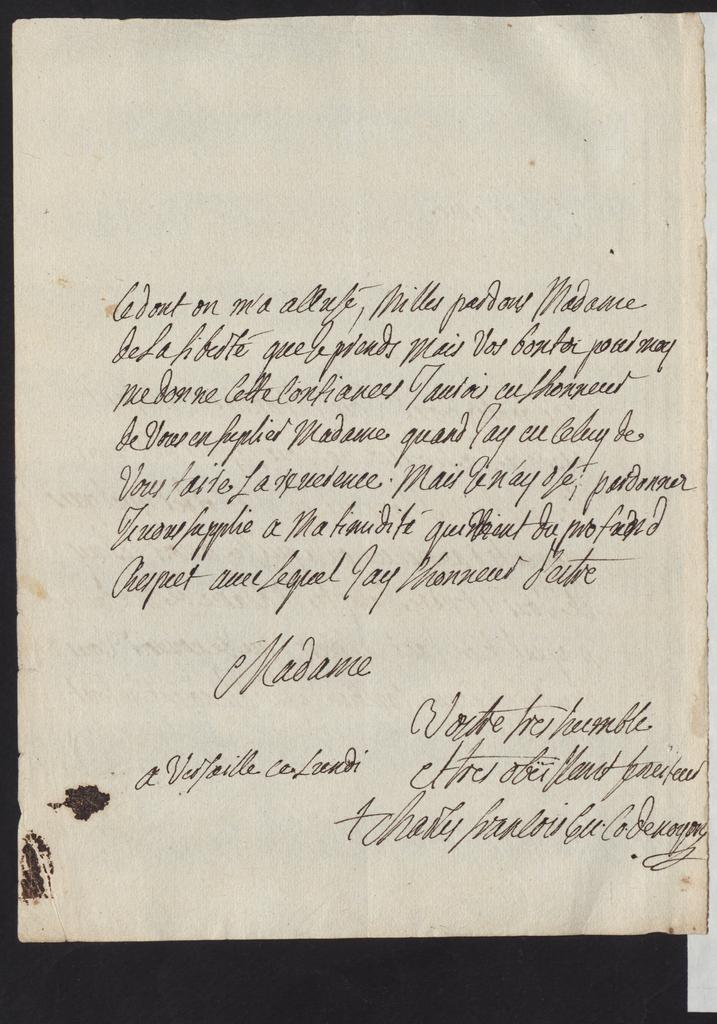 ce dont on m'a accusé, Milles pardons Madame
de La liberté que Je prends mais Vos bontez pour moy
me donne Cette Confiance J'aurois eu Lhonneur
de Vous en suplier Madame quand Jay eu Celuy de
Vous faire La reverence. Mais Je n'ay osé; pardonner
Je vous supplie a Ma timidité qui Vient du profond
Respect avec Lequel Jay Lhonneur d'estre
Madame
Vostre tres humble
a Versaille ce Lundi
et tres obeissant serviteur
+ Charles francois Ev. C. de noyon